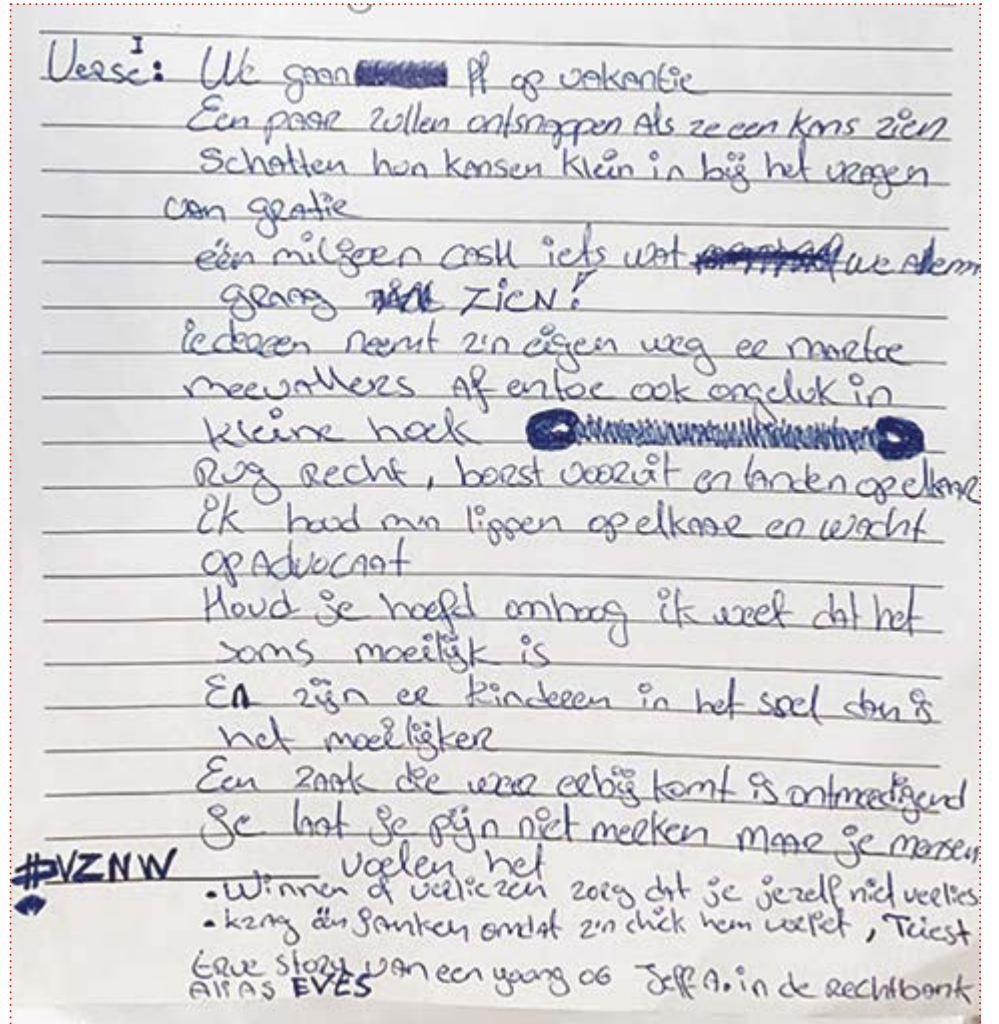 Verse I: We gaan ff op vakantie
Een paar zullen ontsnappen Als ze een kans zien
Schatten hun kansen klein in bij het vragen
van gratie
één miljoen cash iets wat we Allemaal
graag ZIEN!
iedereen neemt z'n eigen weg er naartoe
meevallers Af en toe ook ongeluk in
kleine hoek
Rug recht, borst vooruit en tanden op elkaar
ik houd m'n lippen op elkaar en wacht
op Advocaat
Houd je hoofd omhoog ik weet dat het
soms moeilijk is
En zijn er kinderen in het spel dan is
het moeilijker
Een zaak die weer erbij komt is ontmoedigend
Je laat je pijn niet merken maar je mensen
voelen het
#VZNW
• Winnen of verliezen zorg dat je jezelf niet verlies
• kzag één janken omdat z'n chick hem verliet, Triest
true story van een young OG Jeff A. in de Rechtbank
AliAS EVES